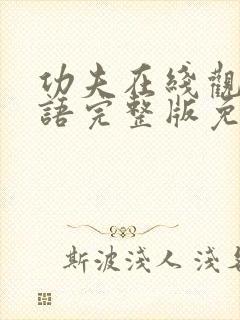 功夫在綫觀
語完整版免
斯波淺人 淺